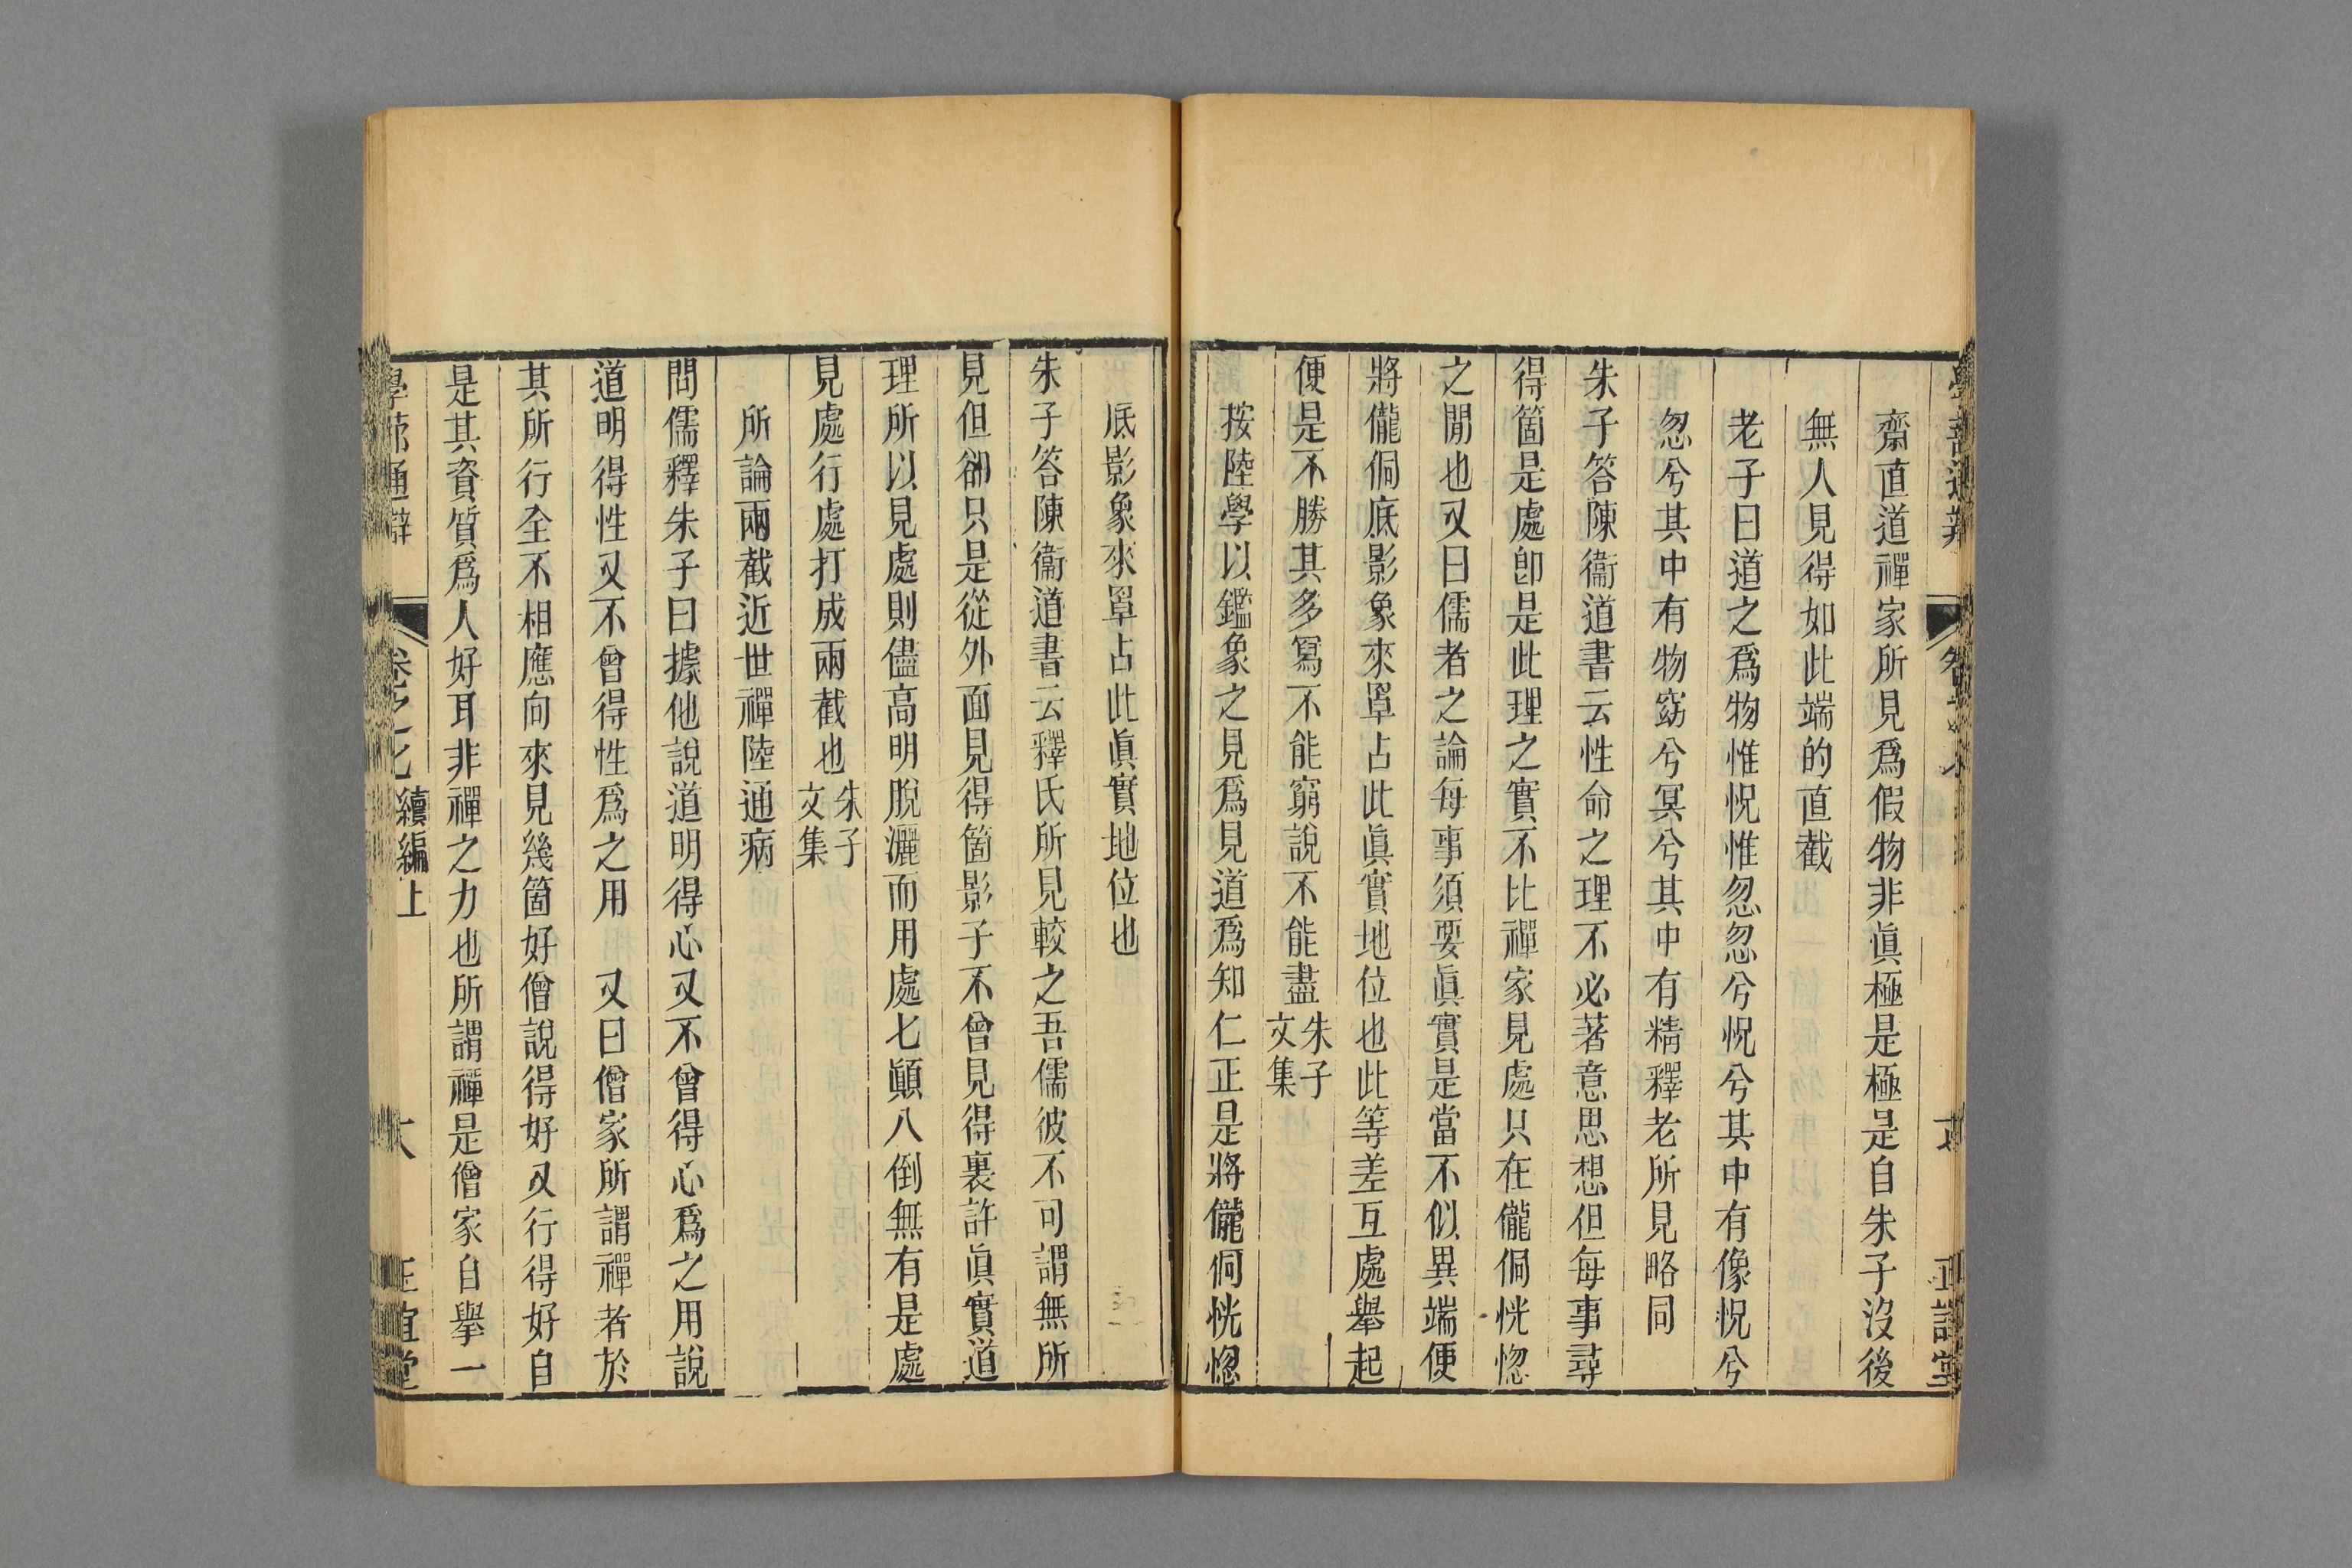 齋直道禪家所見爲假物非眞極是極是自朱子沒後
無人見得如此端的直截
老子曰道之爲物惟怳惟忽忽兮怳兮其中有像怳兮
忽兮其中有物窈兮冥兮其中有精釋老所見略同
朱子答陳衞道書云性命之理不必著意思想但每事尋
得箇是處卽是此理之實不比禪家見處只在儱侗恍惚
之閒也又曰儒者之論每事須要眞實是當不似異端便
將儱侗底影象來罩占此眞實地位也此等差互處舉起
便是不勝其多寫不能窮說不能盡朱子文集
按陸學以鑑象之見爲見道爲知仁正是將儱侗恍惚
底影象來罩占此眞實地位也
朱子答陳衞道書云釋氏所見較之吾儒彼不可謂無所
見但卻只是從外面見得箇影子不曾見得裏許眞實道
理所以見處則儘高明脫灑而用處七顚八倒無有是處
見處行處打成兩截也朱子文集
所論兩截近世禪陸通病
問儒釋朱子曰據他說道明得心又不曾得心爲之用說
道明得性又不曾得性爲之用　又曰僧家所謂禪者於
其所行全不相應向來見幾箇好僧說得好又行得好自
是其資質爲人好耳非禪之力也所謂禪是僧家自舉一
學蔀通辯　卷之七續編上　大　正誼堂